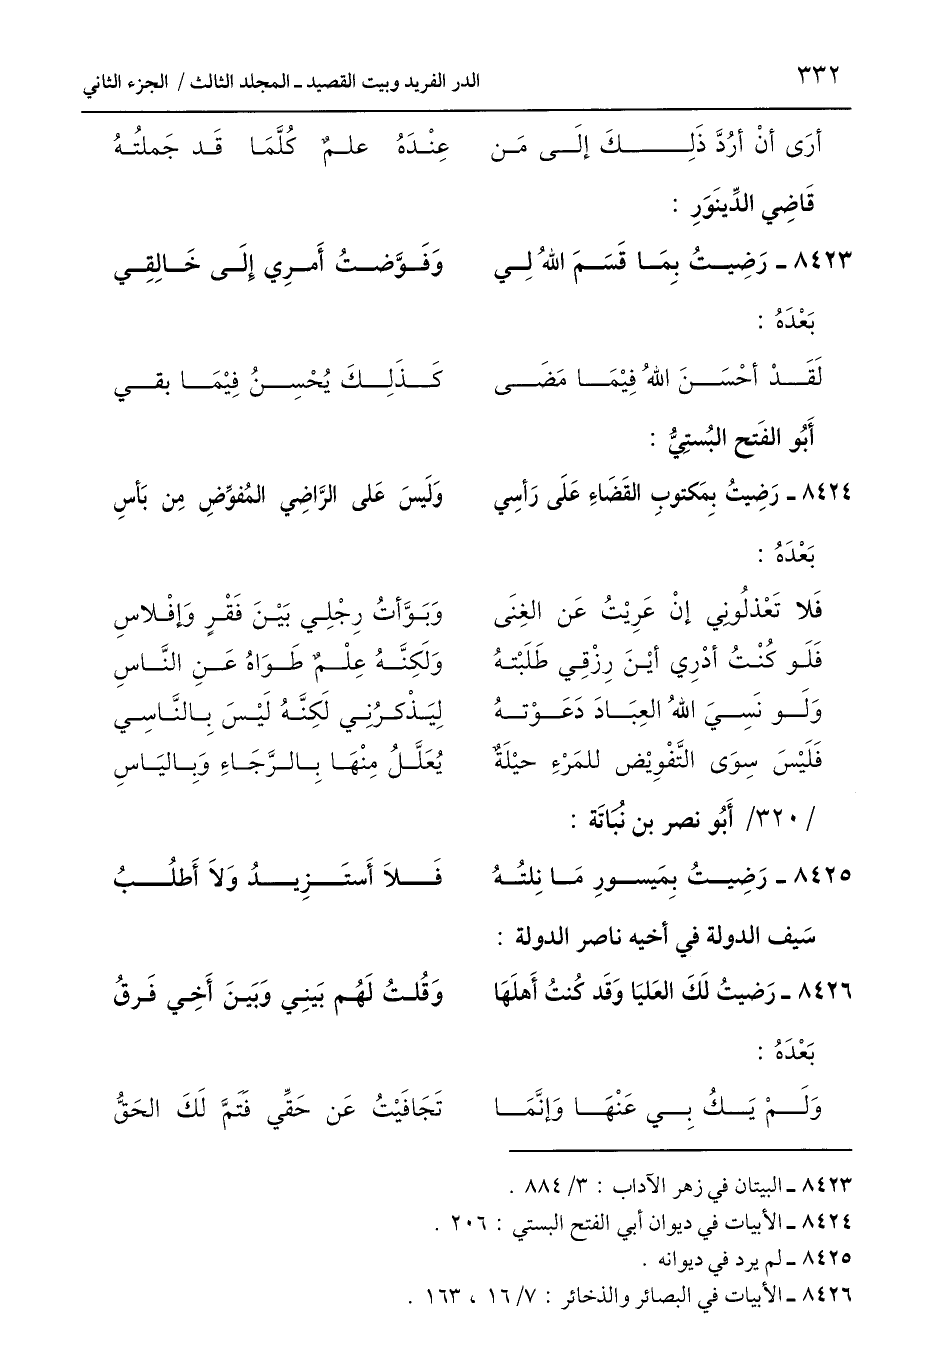 ٣٣٢ الدر الفريد وبيت القصيد ـ المجلد الثالث / الجزء الثاني
أرَى أنْ أرُدَّ ذَلِـــــــكَ إلَــى مَـن عِنْـدَهُ علـمٌ كُلَّمَـا قَـد جَملتُـهُ
قَاضِي الدِّينَوَرِ :
٨٤٢٣ ـ رَضِيـتُ بِمَـا قَسَـمَ اللهُ لِـي وَفَـوَّضـتُ أمـرِي إلَـى خَـالِقِـي
بَعْدَهُ :
لَقَـدْ أحْسَـنَ اللهُ فِيْمَـا مَضَـى كَـذَلِـكَ يُحْسِـنُ فِيْمَـا بقـي
أبُو الفَتح البُستِيُّ :
٨٤٢٤ ـ رَضِيتُ بِمَكتوبِ القَضَاءِ عَلَى رَأسِي وَلَيسَ عَلى الرَّاضِي المُفوِّضِ مِن بَأسِ
بَعْدَهُ :
فَلا تَعْذلُونِي إنْ عَرِيْتُ عَن الغِنَى وَبَوَّأتُ رِجْلِي بَيْنَ فَقْرٍ وَإفْلاسِ
فَلَو كُنْتُ أدْرِي أيْنَ رِزْقِي طَلَبْتهُ وَلَكِنَّـهُ عِلْـمٌ طَـوَاهُ عَـنِ النَّـاسِ
وَلَـو نَسِـيَ اللهُ العِبَـادَ دَعَـوْتـهُ لِيَـذْكـرُنِـي لَكِنَّـهُ لَيْـسَ بِـالنَّاسِـي
فَلَيْسَ سِوَى التَّفْوِيْضِ للمَرْءِ حيْلَةٌ يُعَلَّـلُ مِنْهَـا بِـالـرَّجَـاءِ وَبـاليَـاسِ
/ ٣٢٠/ أبُو نصر بن نُبَاتَة :
٨٤٢٥ ـ رَضِيـتُ بِمَيسـورِ مَـا نِلتُـهُ فَـلاَ أستَـزِيـدُ وَلاَ أطلُـبُ
سَيف الدولة في أخيه ناصر الدولة :
٨٤٢٦ ـ رَضيتُ لَكَ العَليَا وَقَد كُنتُ أهلَهَا وَقُلتُ لَهُم بَينِي وَبَينَ أخِي فَرقُ
بَعْدَهُ :
وَلَـمْ يَـكُ بِـي عَنْهَـا وَإنَّمَـا تَجَافَيْتُ عَن حَقِّي فَتَمَّ لَكَ الحَقُّ
٨٤٢٣ ـ البيتان في زهر الآداب : ٣/ ٨٨٤ .
٨٤٢٤ ـ الأبيات في ديوان أبي الفتح البستي : ٢٠٦ .
٨٤٢٥ ـ لم يرد في ديوانه .
٨٤٢٦ ـ الأبيات في البصائر والذخائر : ٧/ ١٦ ، ١٦٣ .